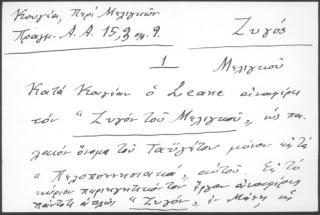 Κουγέα, Περί Μελιγκῶν
Πραγμ. Α.Α. 15,3 σελ. 9.
Ζυγός
1
Μελιγκοῦ
Κατά Κουγέαν ὁ Leake ἀναφέρει
τόν "Ζυγόν τοῦ Μελιγκοῦ", ὡς πα-
λαιόν ὄνομα τοῦ Ταϋγέτου μόνον εἰς τά
"Πελοποννησιακά" αὐτοῦ. Εἰς τό
κύριον περιηγητικόν του ἔργον ἀναφέρει
πάντοτε ἁπλῶς "Ζυγόν", ἡ Μάνη